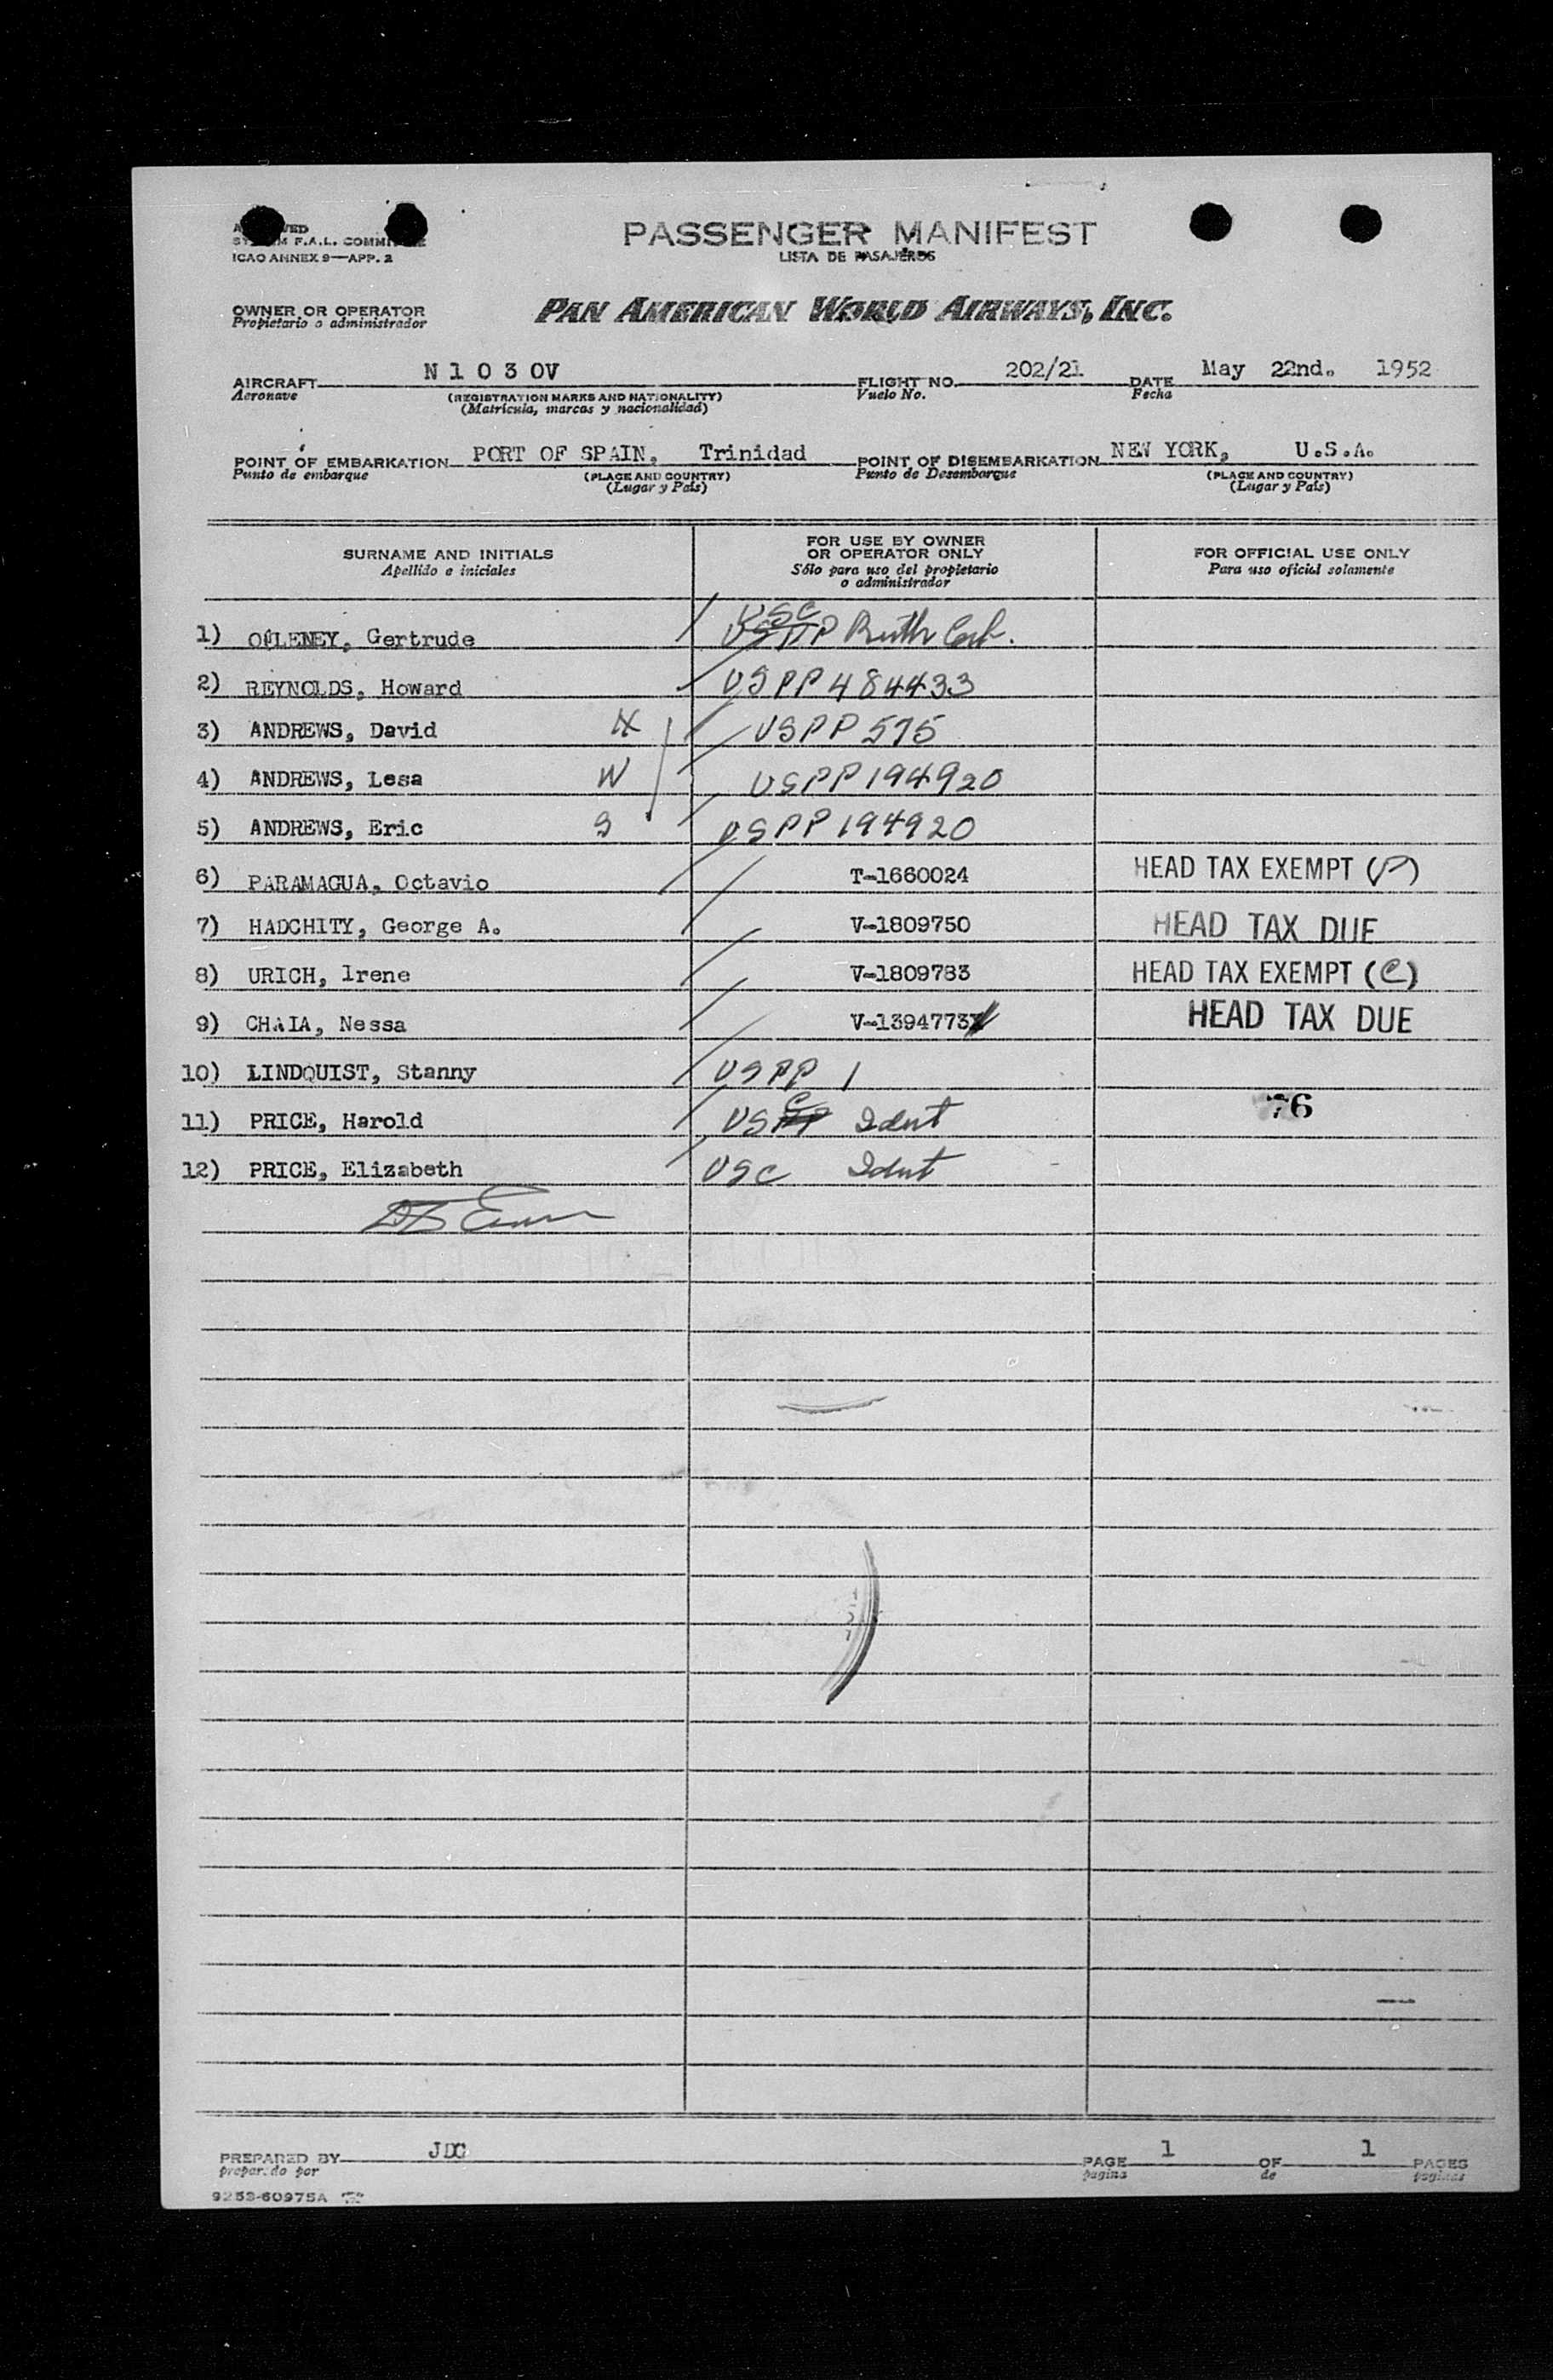 ICAO ANNEX 9—APP. 2
PASSENGER MANIFEST
LISTA DE PASAJEROS
OWNER OR OPERATOR
Propietario o administrador
PAN AMERICAN WORLD AIRWAYS, INC.
AIRCRAFT N 1 0 3 0V FLIGHT NO. 202/21 DATE May 22nd. 1952
Aeronave (REGISTRATION MARKS AND NATIONALITY) Vuelo No. Fecha
(Matrícula, marcas y nacionalidad)
POINT OF EMBARKATION PORT OF SPAIN, Trinidad POINT OF DISEMBARKATION NEW YORK, U.S.A.
Punto de embarque (PLACE AND COUNTRY) Punto de Desembarque (PLACE AND COUNTRY)
(Lugar y País) (Lugar y País)
SURNAME AND INITIALS
Apellido e iniciales
FOR USE BY OWNER
OR OPERATOR ONLY
Sólo para uso del propietario
o administrador
FOR OFFICIAL USE ONLY
Para uso oficial solamente
1) Gertrude USC
2) REYNOLDS, Howard USPP 484433
3) ANDREWS, David USPP 575
4) ANDREWS, Lesa W USPP 194920
5) ANDREWS, Eric S USPP 194920
6) PARAMAGUA, Octavio T-1660024 HEAD TAX EXEMPT (P)
7) HADCHITY, George A. V-1809750 HEAD TAX DUE
8) URICH, Irene V-1809783 HEAD TAX EXEMPT (C)
9) CHAIA, Nessa V-1394773 HEAD TAX DUE
10) LINDQUIST, Stanny USPP 1
11) PRICE, Harold USC Idnt 76
12) PRICE, Elizabeth USC Idnt
PREPARED BY JDC PAGE 1 OF 1 PAGES
preparado por pagina de paginas
9253-60975A